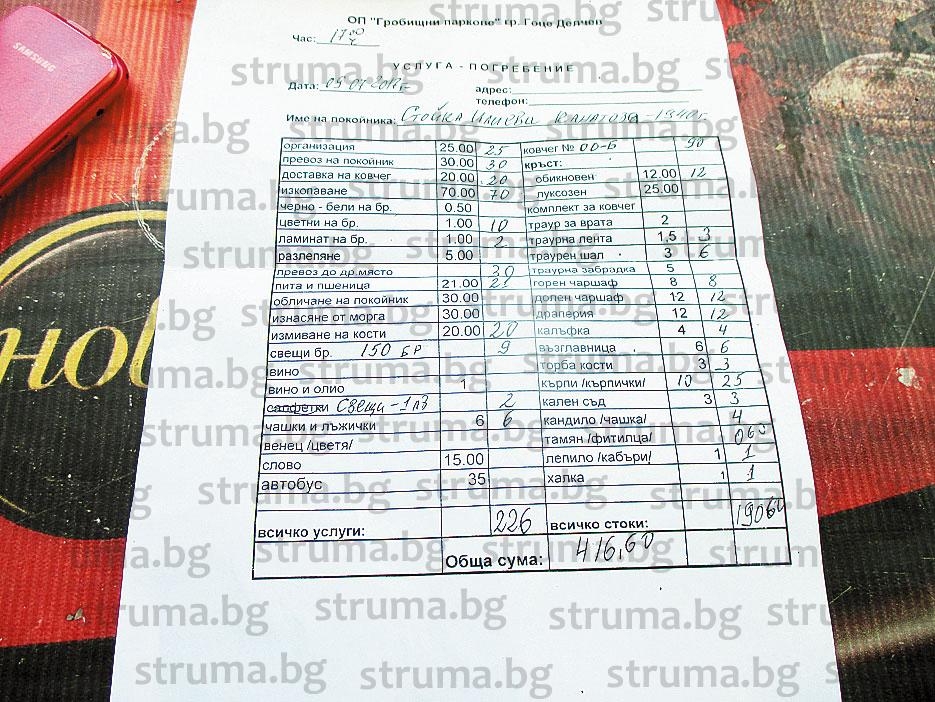 SAMSUNG
ОП "Гробищни паркове" гр. Гоце Делчев
Час: 17 00 ч
УСЛУГА - ПОГРЕБЕНИЕ
Дата: адрес:
телефон:
Име на покойника: Стойка Илиева - 1940г.
организация 25.00 25 ковчег № 00-Б 90
превоз на покойник 30.00 30 кръст:
доставка на ковчег 20.00 20 обикновен 12.00 12
изкопаване 70.00 70 луксозен 25.00
черно - бели на бр. 0.50 комплект за ковчег
цветни на бр. 1.00 10 траур за врата 2
ламинат на бр. 1.00 2 траурна лента 1,5 3
разлепяне 5.00 траурен шал 3 6
превоз до др.място 30 траурна забрадка 5
пита и пшеница 21.00 21 горен чаршаф 8 8
обличане на покойник 30.00 долен чаршаф 12 12
изнасяне от морга 30.00 драперия 12 12
измиване на кости 20.00 20 калъфка 4 4
свещи бр. 150 бр 9 възглавница 6 6
вино торба кости 3 3
вино и олио 1 кърпи /кърпички/ 10 25
салфетки Свещи - 1 2 кален съд 3 3
чашки и лъжички 6 6 кандило /чашка/ 4
венец /цветя/ тамян /фитилца/ 060
слово 15.00 лепило /кабъри/ 1 1
автобус 35 халка 1 1
всичко услуги: 226 всичко стоки: 190 60
Обща сума: 416,60
нов
struma.bg